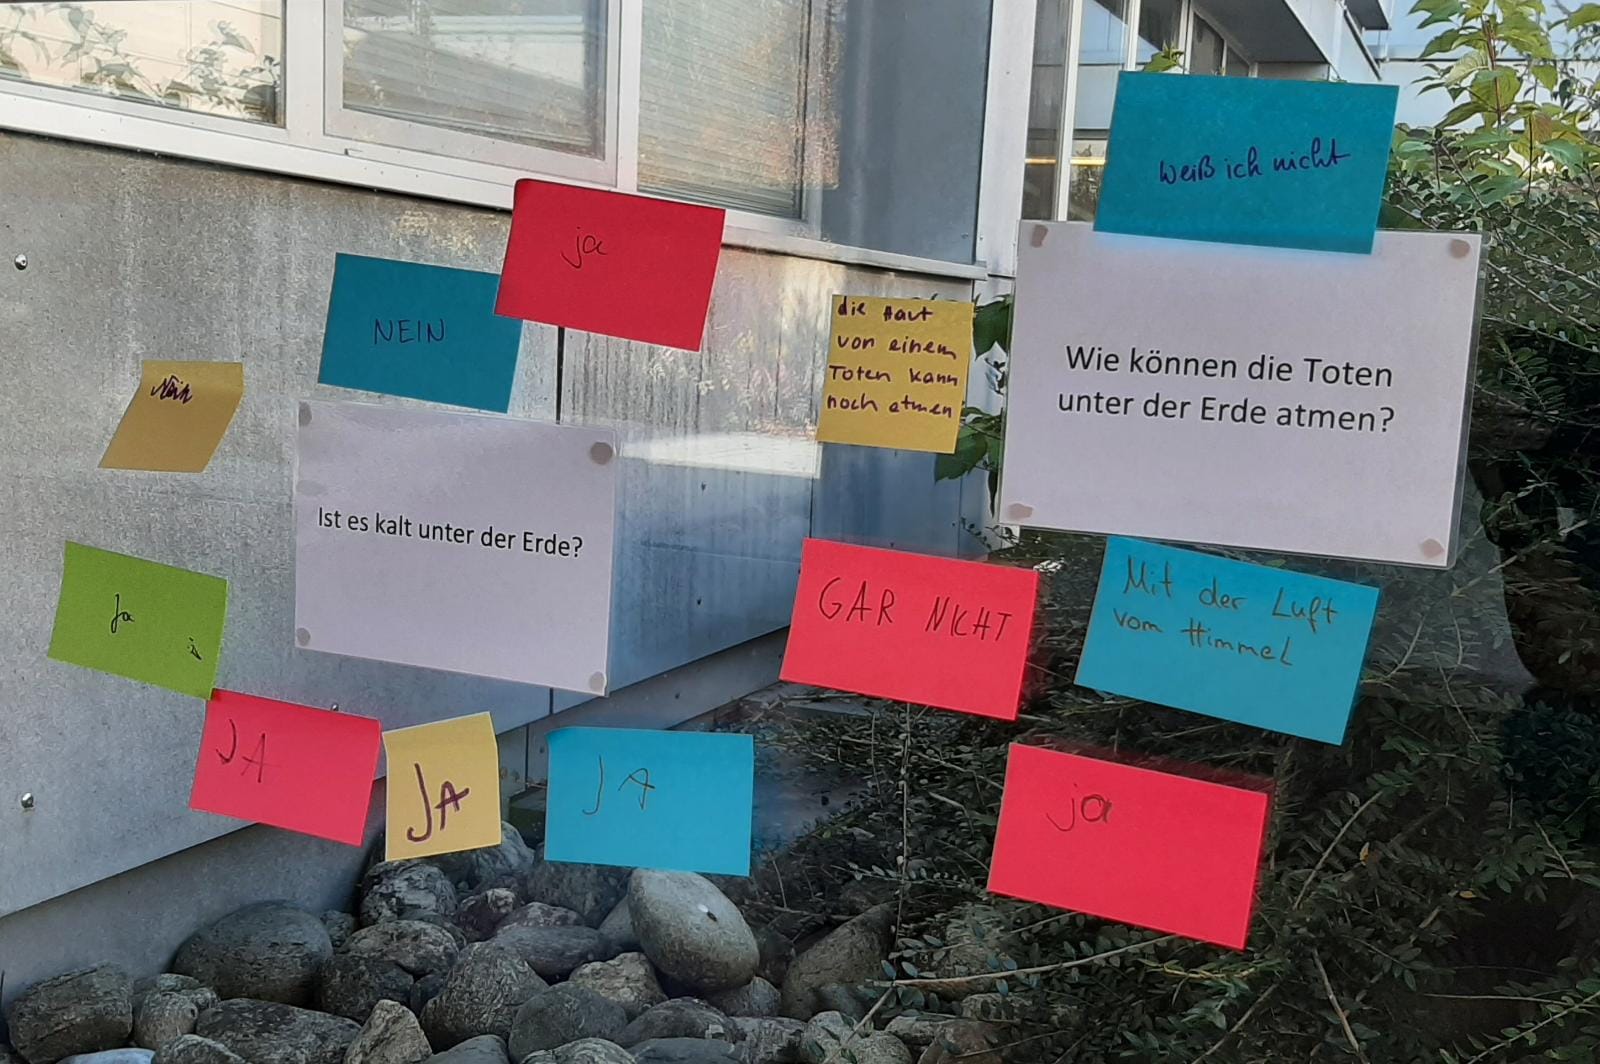 weiß ich nicht
ja
NEIN
Nein
die Haut
von einem
Toten kann
noch atmen
Wie können die Toten
unter der Erde atmen?
Ist es kalt unter der Erde?
Ja
GAR NICHT
Mit der Luft
vom Himmel
JA
JA
JA
ja